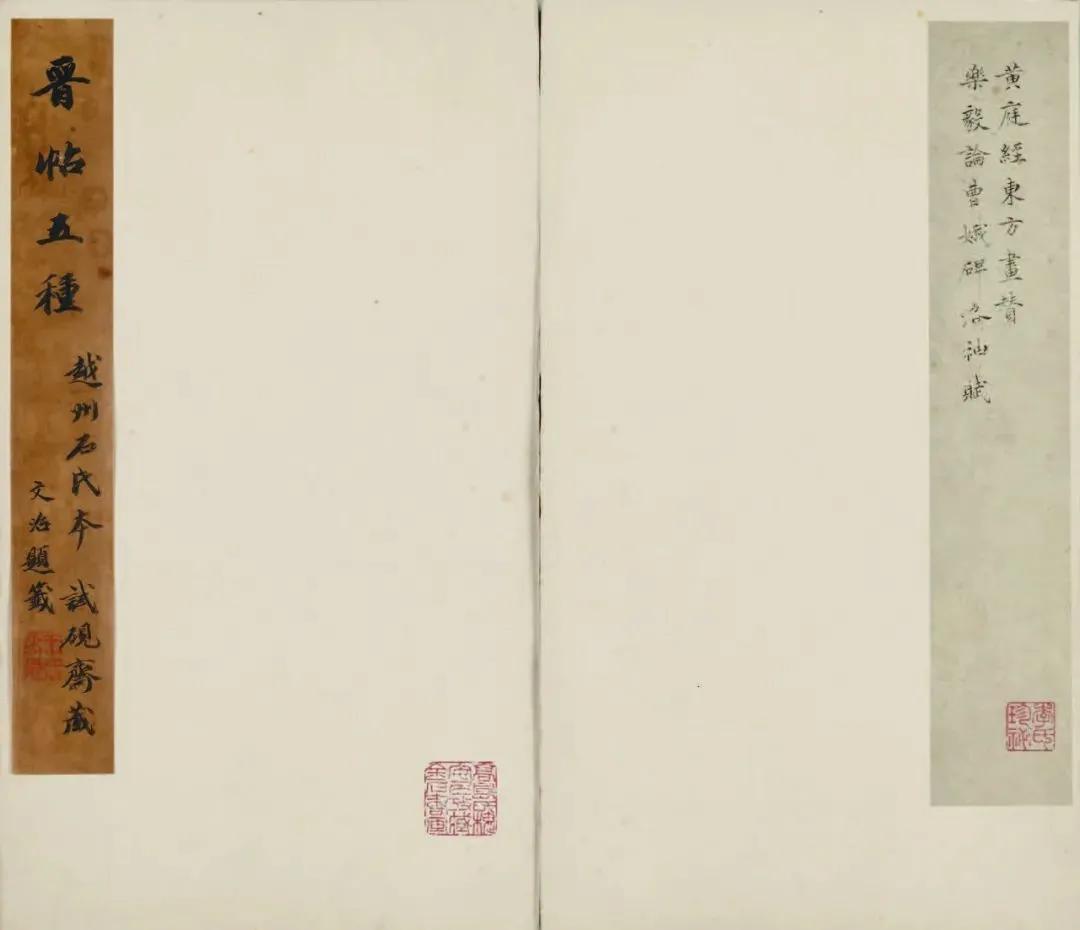 黄庭經東方畫贊
樂毅論曹娥碑洛神賦
晉帖五種
越州石氏本 試硯齋藏
文治題籤